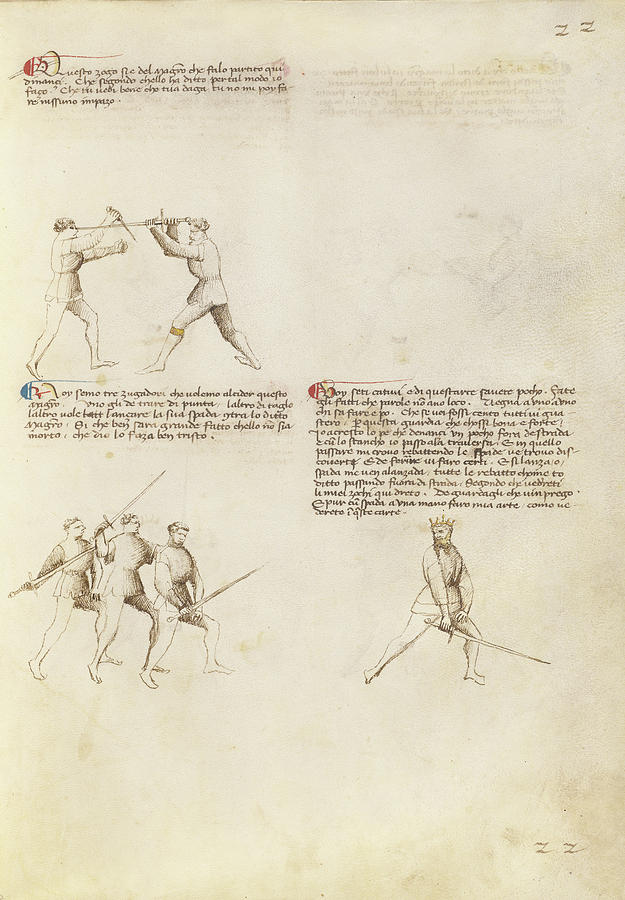 22
Questo zogo si è del Magistro che fa lo partito qui
dinanci. Che segondo ch'ello ha ditto per tal modo io
faço. Che tu vedi bene che tua daga tu no mi poy fa
re nissuno impazo.
Noy semo tre zugadori che volemo alcider questo
Magistro. Uno gli de' trare di punta, l'altro di taglo
l'altro vole lançare la sua spada contra lo ditto
Magistro. Sì che ben sarà grande fatto ch'ello non sia
morto, che dio lo faza ben tristo.
Voy seti cativi e di quest'arte savete pocho. Fate
gli fatti che parole non ano loco. Vegna a uno a uno
chi sa fare e po. Che se voi fossi cento tutti vi gua
sterò, per questa guardia ch'è chossì bona e forte.
Io acresco lo pe' ch'è denanci un pocho fora de strada
e cum lo stancho io passo ala traversa. E in quello
passare mi crovo rebattendo le spade ve trovo dis
coverti e de ferire vi farò certi. E si lanza o
spada me ven alanzada, tutte le rebatto chome t'ò
ditto passando fuora di strada, segondo che vedreti
li miei zochi qui dreto. De guardagli che v'in prego.
E pur cum spada a una mano farò mia arte, como ve
dereto in queste carte.
22